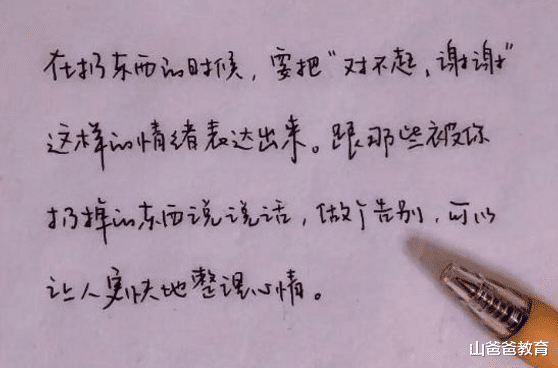 在扔东西的时候，要把“对不起，谢谢”
这样的情绪表达出来。跟那些被你
扔掉的东西说说话，做个告别，可以
让人更快地整理心情。
山爸爸教育